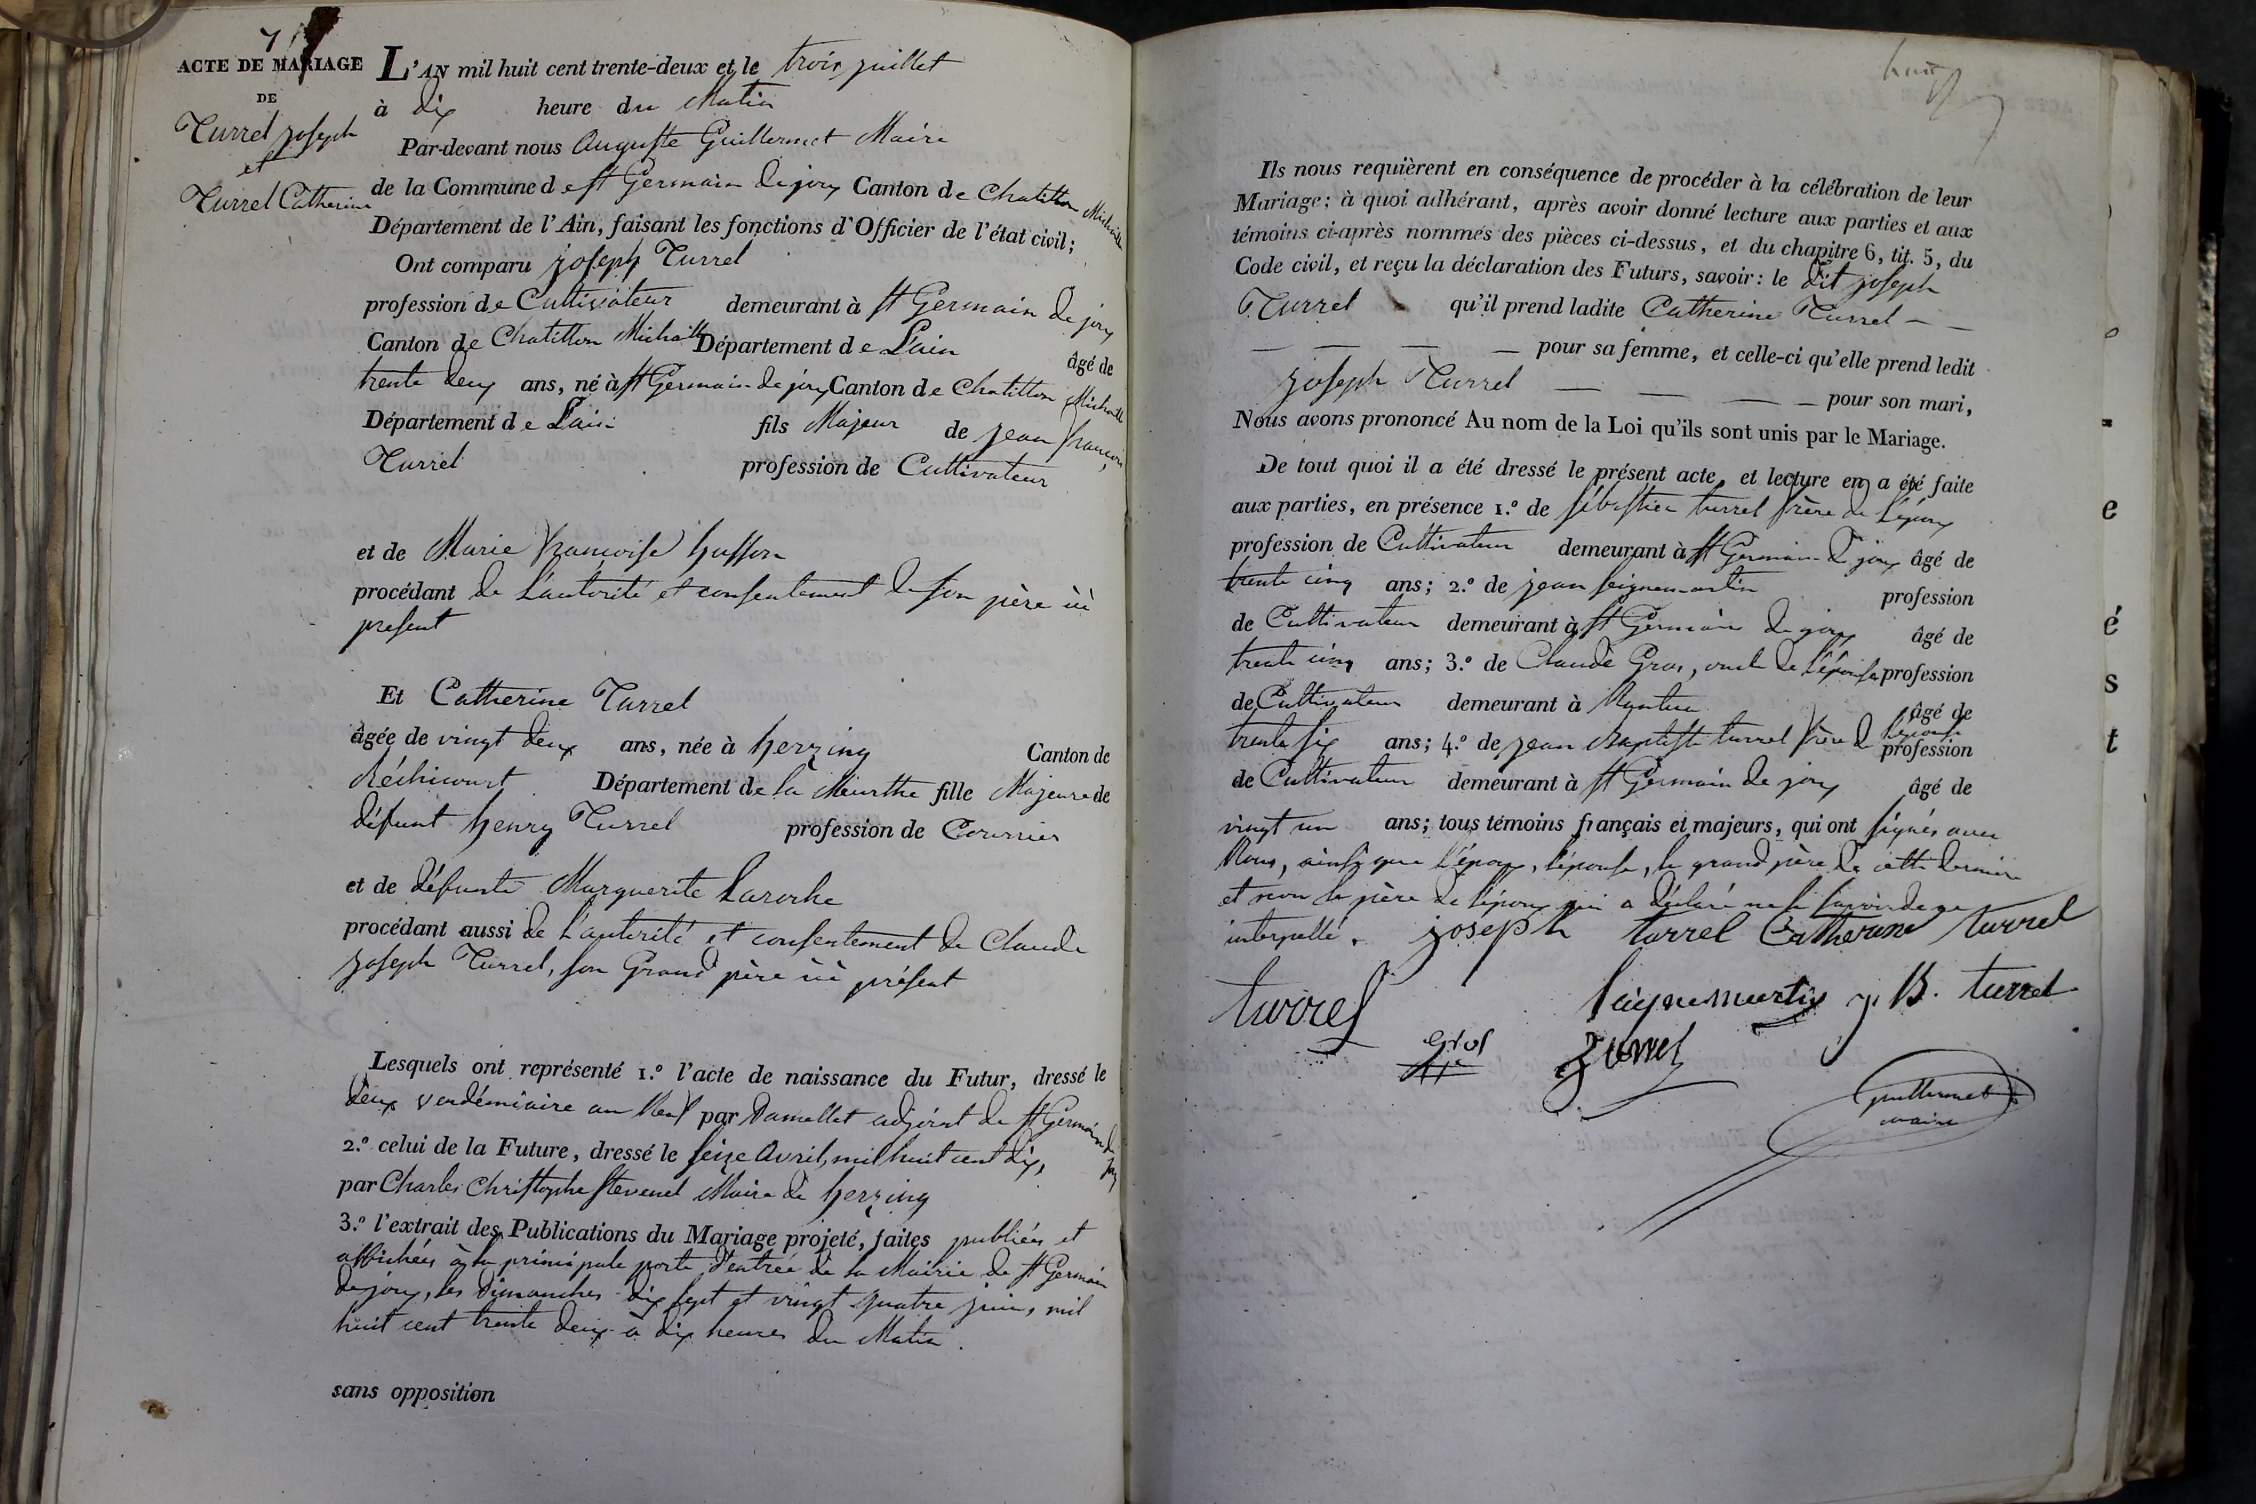 7
ACTE DE MARIAGE
DE
Turrel joseph
et
Turrel Catherine
L'AN mil huit cent trente-deux et le trois juillet
à dix heure du Matin
Par-devant nous Auguste Guillermet Maire
de la Commune de St Germain de joux Canton de Chatillon Michaille
Département de l'Ain, faisant les fonctions d'Officier de l'état civil;
Ont comparu joseph Turrel
profession de Cultivateur demeurant à St Germain de joux
Canton de Chatillon Michaille Département de L'ain âgé de
trente deux ans, né à St Germain de joux Canton de Chatillon Michaille
Département de L'ain fils Majeur de jean françois
Turrel profession de Cultivateur
et de Marie françoise husson
procédant de L'autorité et consentement de son père ici
présent
Et Catherine Turrel
âgée de vingt deux ans, née à herzing Canton de
Réchicourt Département de la Meurthe fille Majeure de
défunt henry Turrel profession de Courrier
et de défunte Marguerite Laroche
procédant aussi de L'autorité et consentement de Claude
joseph Turrel, son Grand père ici présent
Lesquels ont représenté 1.º l'acte de naissance du Futur, dressé le
deux vendémiaire an Neuf par Damollet adjoint de St Germain de joux
2.º celui de la Future, dressé le seize Avril, mil huit cent dix,
par Charles Christophe Stevenel Maire de herzing
3.º l'extrait des Publications du Mariage projeté, faites publiées et
affichées à la principale porte d'entrée de la Mairie de St Germain
de joux, les dimanches dix sept et vingt quatre juin, mil
huit cent trente deux à dix heures du Matin.
sans opposition
huit
Ils nous requièrent en conséquence de procéder à la célébration de leur
Mariage; à quoi adhérant, après avoir donné lecture aux parties et aux
témoins ci-après nommés des pièces ci-dessus, et du chapitre 6, tit. 5, du
Code civil, et reçu la déclaration des Futurs, savoir: le dit joseph
Turrel qu'il prend ladite Catherine Turrel — —
— — — — — pour sa femme, et celle-ci qu'elle prend ledit
joseph Turrel — — — — pour son mari,
Nous avons prononcé Au nom de la Loi qu'ils sont unis par le Mariage.
De tout quoi il a été dressé le présent acte, et lecture en a été faite
aux parties, en présence 1.º de sébastien turrel frère de l'époux
profession de Cultivateur demeurant à St Germain de joux âgé de
trente cinq ans; 2.º de jean seignemartin profession
de Cultivateur demeurant à St Germain de joux âgé de
trente cinq ans; 3.º de Claude Gros, oncle de l'épouse profession
de Cultivateur demeurant à Nantua âgé de
trente six ans; 4.º de jean Baptiste turrel frère de l'épouse profession
de Cultivateur demeurant à St Germain de joux âgé de
vingt un ans; tous témoins français et majeurs, qui ont signés avec
Nous, ainsi que l'époux, l'épouse, le grand père de cette dernière
et non le père de l'époux qui a déclaré ne le savoir de ce
interpellé. joseph turrel Catherine turrel
turrel seignemartin j. B. turrel
Gros turrel
guillermet
maire
e
é
s
t